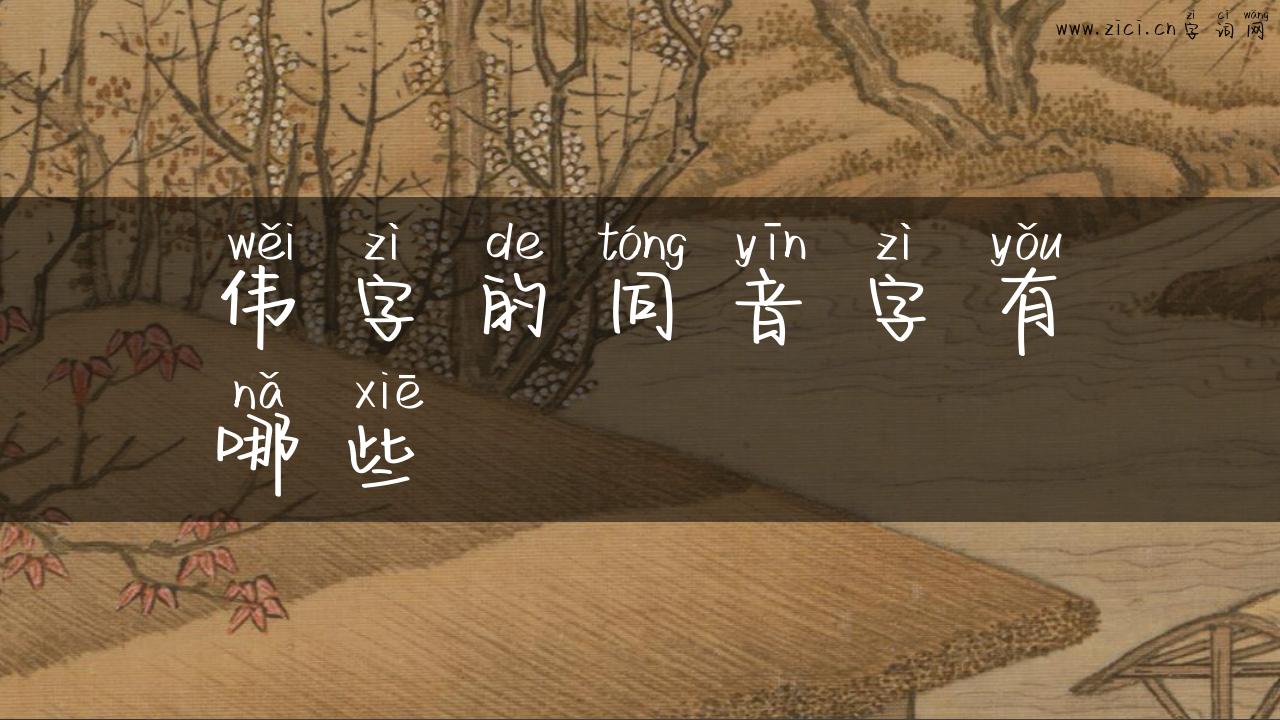 zì cí wǎng
www.zici.cn字词网
wěi zì de tóng yīn zì yǒu
伟字的同音字有
nǎ xiē
哪些